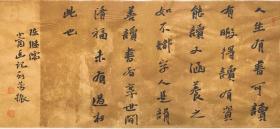 人生有書可讀
有暇得讀有資
能讀又涵養之
如不識字人是
善讀書者享世間
清福未有過於
此也
陳繼儒
小窗幽記